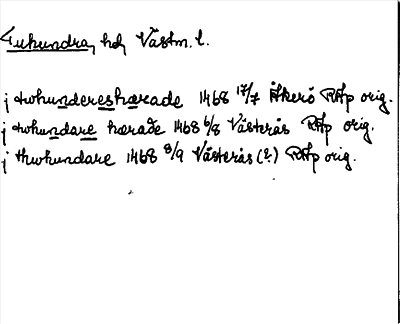 Tuhundra, hd, Västm. l.
j twhundereshærade 1468 17/7 Åkerö RAp orig.
j twhundare hærade 1468 6/8 Västerås RAp orig.
j thwhundare 1468 8/9 Västerås (?) RAp orig.